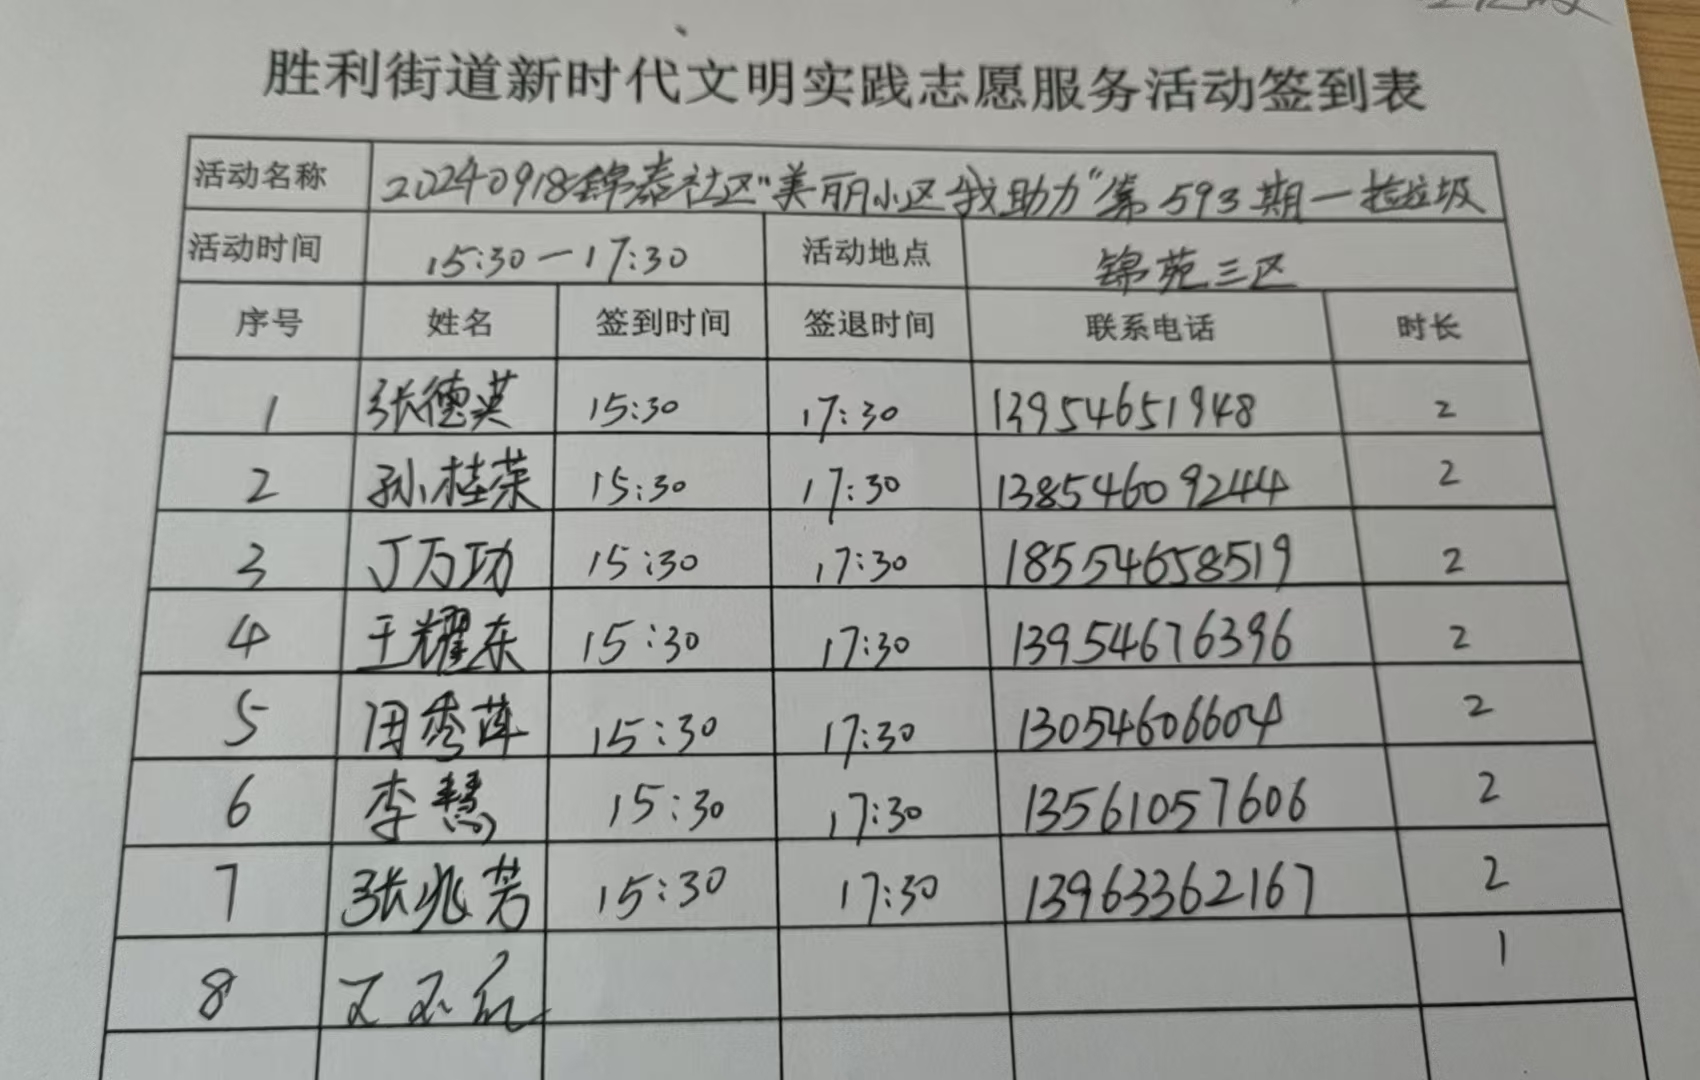 胜利街道新时代文明实践志愿服务活动签到表
活动名称 20240918锦泰社区“美丽小区我助力”第593期一捡垃圾
活动时间 15:30一17:30 活动地点 锦苑三区
序号 姓名 签到时间 签退时间 联系电话 时长
1 张德英 15:30 17:30 13954651948 2
2 孙桂荣 15:30 17:30 13854609244 2
3 丁万功 15:30 17:30 18554658519 2
4 王耀东 15:30 17:30 13954676396 2
5 周秀萍 15:30 17:30 13054606604 2
6 李慧 15:30 17:30 13561057606 2
7 张兆芳 15:30 17:30 13963362167 2
8 1